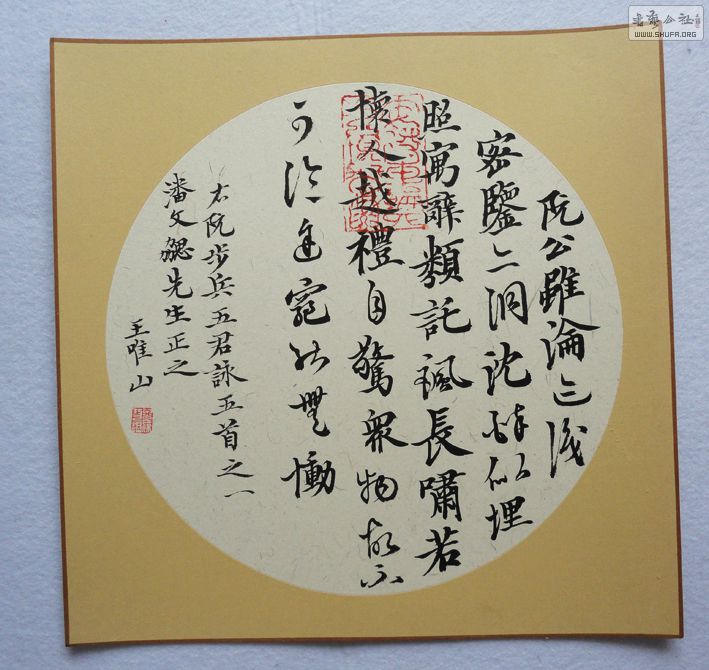 阮公雖淪迹識
密鑒亦洞沈醉似埋
照寓辭類託諷長嘯若
懷人越禮自驚眾物故不
可論途窮能無慟
右阮步兵五君詠五首之一
潘文勰先生正之
王唯山
書法公社
WWW.SHUFA.ORG